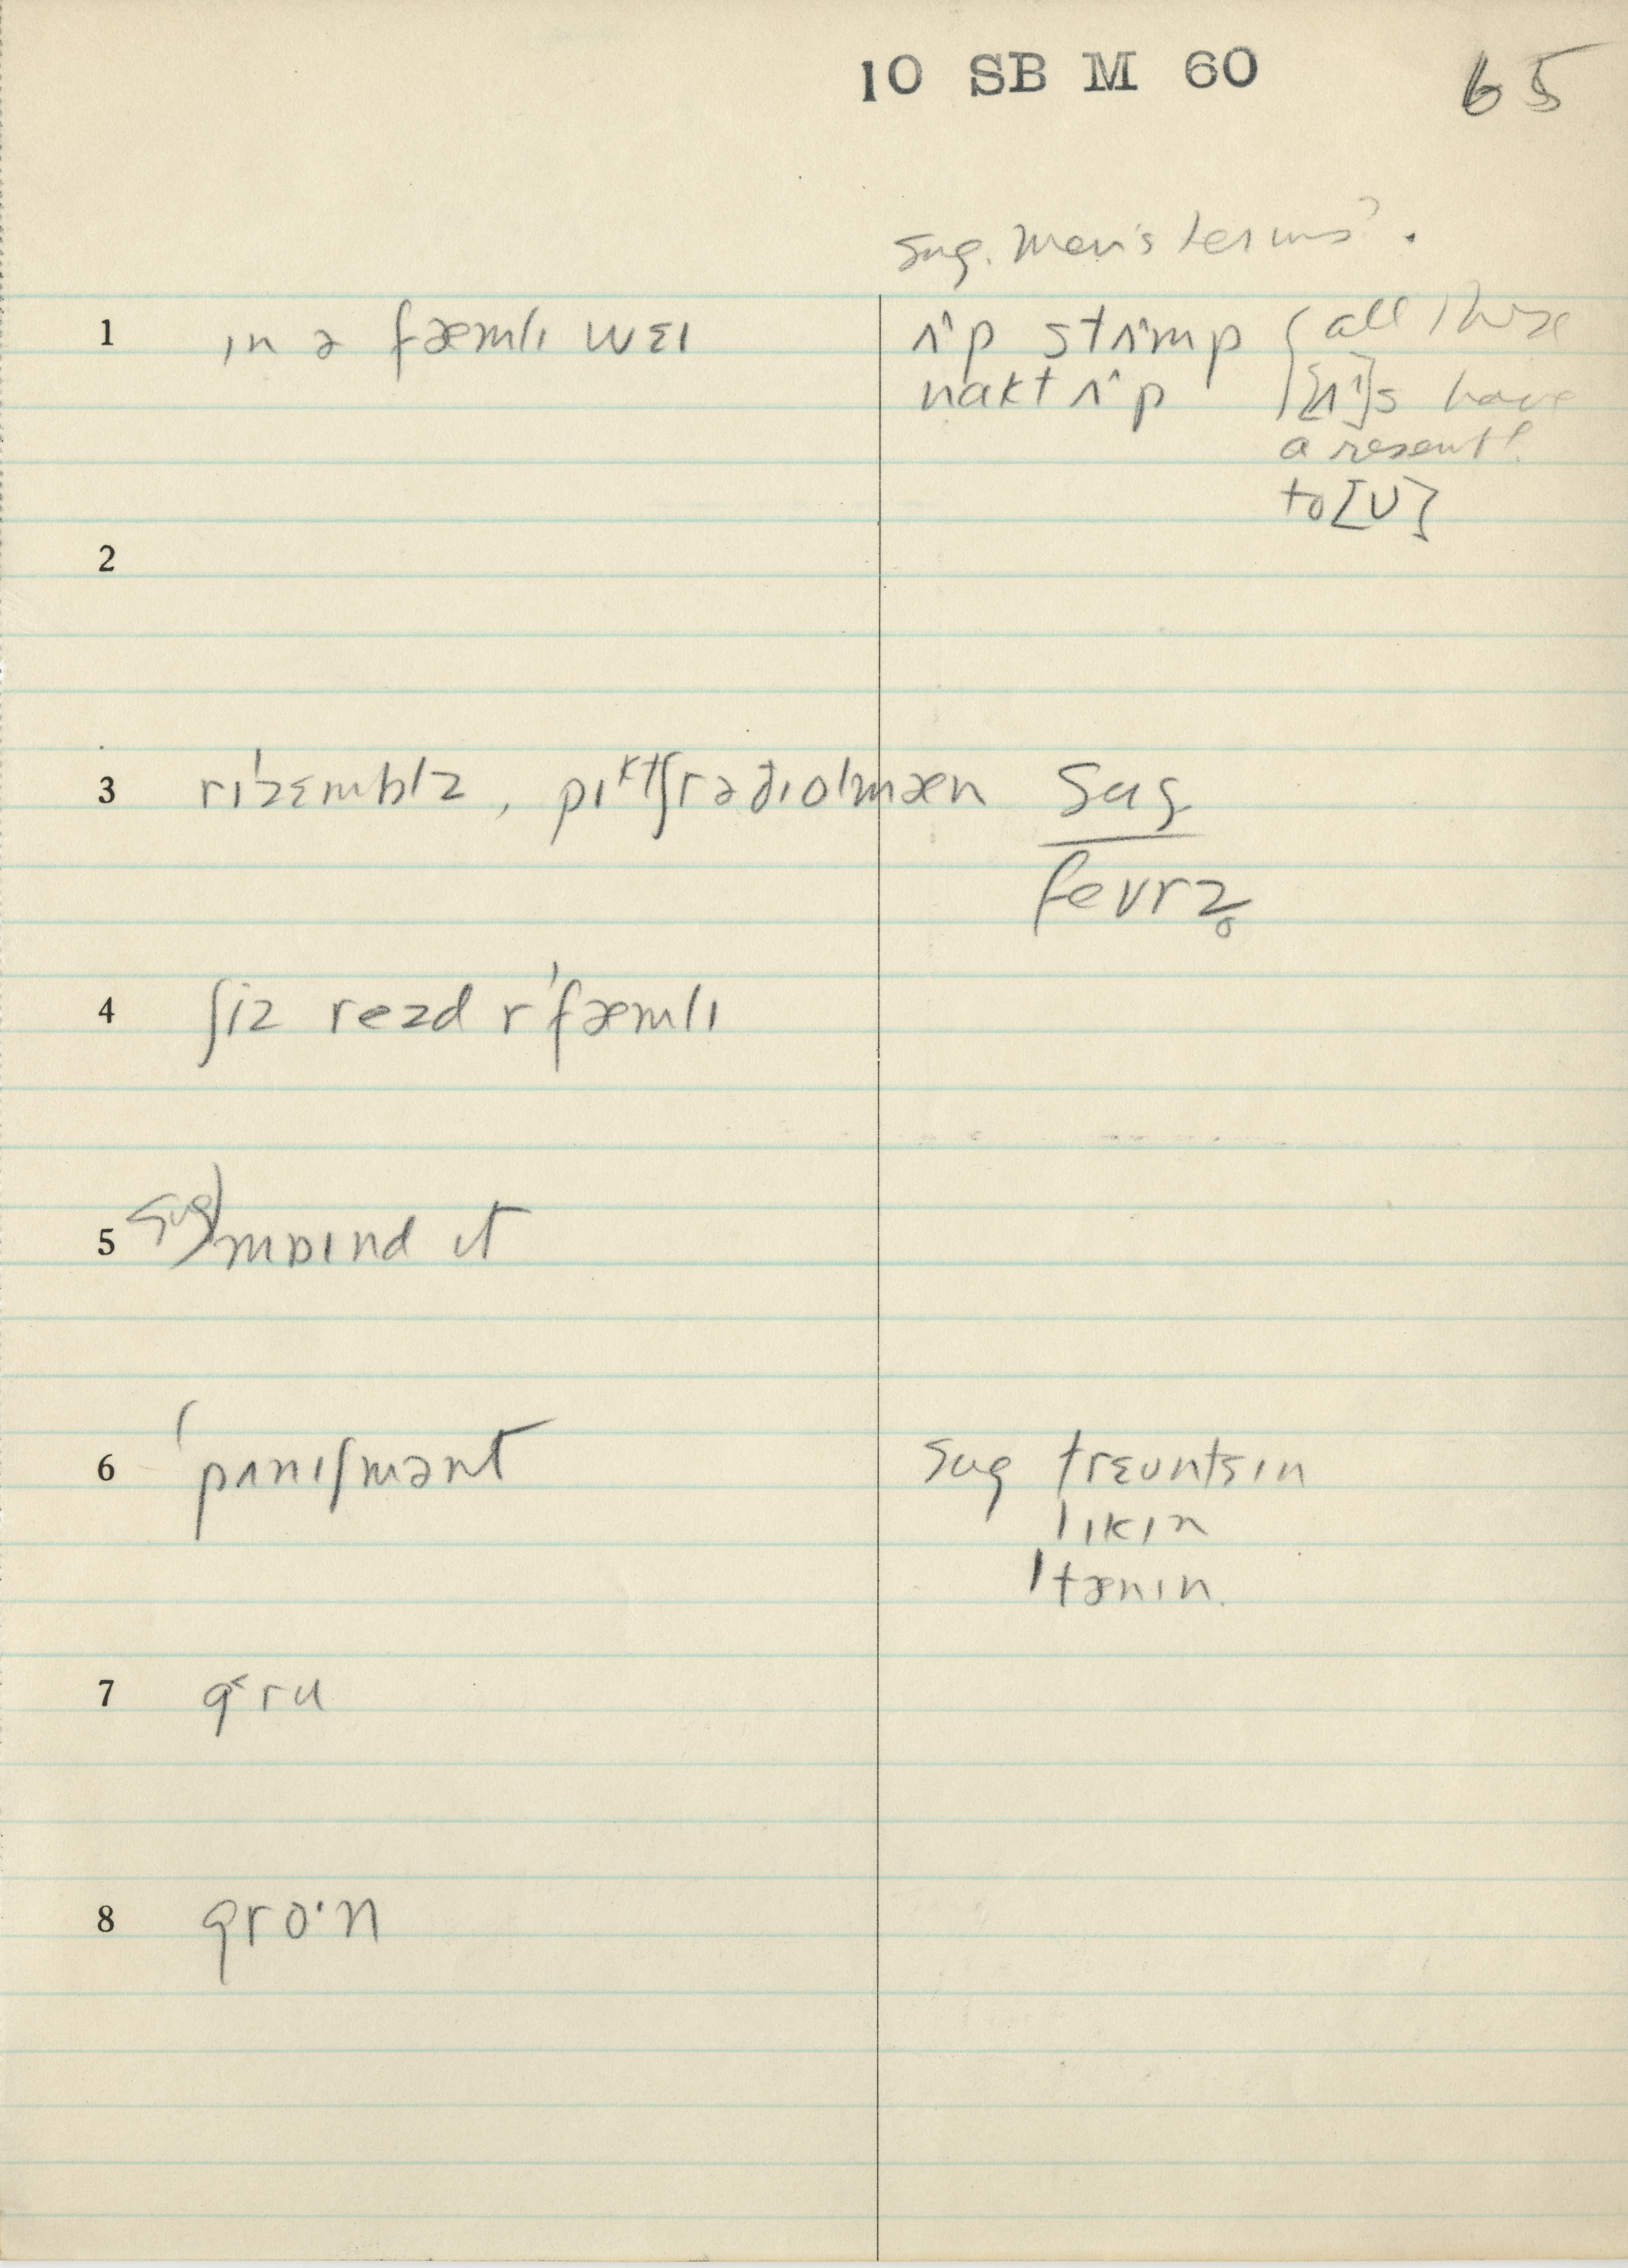 10 SB M 60 65
sug. men's terms?.
1 ɪn ə fæmlɪ wɛɪ ʌ^p stʌ^mp all these
nakt ʌ^p [ʌ^]s have
a resembl.
to [ʊ]
2
3 rɪˈzɛmblz, pɪktʃrəðɪolmæn sug
fevrz̥
4 ʃiz rezd rˈfæmlɪ
5 sug) mɒɪnd ɪt
6 ˈpʌnɪʃmənt sug trɛʊntsɪn
lɪkɪn
ˈtænɪn.
7 g˂ru
8 gro·n